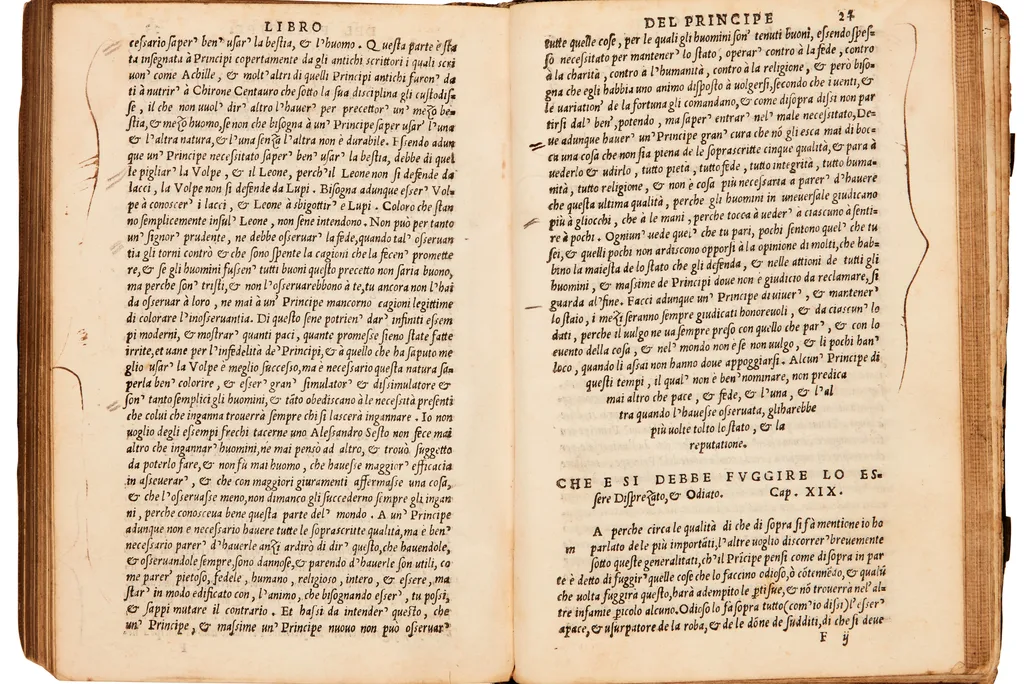 LIBRO
cessario saper' ben' usar' la bestia, & l'huomo. Questa parte è sta
ta insegnata à Principi copertamente da gli antichi scrittori i quali scri
uon' come Achille, & molt'altri di quelli Principi antichi furon' da
ti à nutrir' à Chirone Centauro che sotto la sua disciplina gli custodis-
se, il che non uuol' dir' altro l'hauer' per precettor' un' mezo be-
stia, & mezo huomo, se non che bisogna à un' Principe saper usar' l'una
& l'altra natura, & l'una senza l'altra non è durabile. Essendo adun
que un' Principe necessitato saper' ben' usar' la bestia, debbe di quel
le pigliar' la Volpe, & il Leone, perch'il Leone non si defende da
lacci, la Volpe non si defende da Lupi. Bisogna adunque esser' Vol-
pe à conoscer' i lacci, & Leone à sbigottir' e Lupi. Coloro che stan
no semplicemente in sul' Leone, non se ne intendono. Non può per tanto
un' signor' prudente, ne debbe osseruar' la fede, quando tal' osseruan
tia gli torni contrò & che sono spente la cagioni che la fecen' promette
re, & se gli huomini fussen' tutti buoni questo precetto non saria buono,
ma perche son' tristi, & non l'osseruarebbono à te, tu ancora non l'hai
da osseruar à loro, ne mai à un' Principe mancorno cagioni legittime
di colorare l'inosseruantia. Di questo sene potrien' dar' infiniti essem
pi moderni, & mostrar' quanti paci, quante promesse sieno state fatte
irrite, et uane per l'infedelità de' Principi, & à quello che ha saputo me
glio usar' la Volpe è meglio successo, ma è necessario questa natura sa-
perla ben' colorire, & esser' gran' simulator' & dissimulatore &
son' tanto semplici gli huomini, & tāto obediscano à le necessità presenti
che colui che inganna trouerrà sempre chi si lascerà ingannare. Io non
uoglio degli essempi freschi tacerne uno Alessandro Sesto non fece mai
altro che ingannar' huomini, ne mai pensò ad altro, & trouò suggetto
da poterlo fare, & non fù mai huomo, che hauesse maggior' efficacia
in asseuerar', & che con maggiori giuramenti affermasse una cosa,
& che l'osseruasse meno, non dimanco gli succederno sempre gli ingan
ni, perche conosceua bene questa parte del' mondo. A un' Principe
adunque non e necessario hauere tutte le soprascritte qualità, ma è ben'
necessario parer' d'hauerle anzi ardirò di dir' questo, che hauendole,
& osseruandole sempre, sono dannose, & parendo d'hauerle son utili, co
me parer' pietoso, fedele, humano, religioso, intero, & essere, ma
star' in modo edificato con l'animo, che bisognando esser', tu possi,
& sappi mutare il contrario. Et hassi da intender' questo, che
un' Principe, & massime un' Principe nuouo non può osseruar'
DEL PRINCIPE 24
tutte quelle cose, per le quali gli huomini son' tenuti buoni, essendo spes-
so necessitato per mantener' lo stato, operar' contro à la fede, contro
à la charità, contro à l'humanità, contro à la religione, & però biso-
gna che egli habbia uno animo disposto à uolgersi, secondo che i uenti, &
le uariation' de la fortuna gli comandano, & come disopra dissi non par
tirsi dal' ben', potendo, ma saper' entrar' nel' male necessitato, De-
ue adunque hauer' un' Principe gran' cura che nō gli esca mai di boc-
ca una cosa che non sia piena de le soprascritte cinque qualità, & para à
uederlo & udirlo, tutto pieta, tutto fede, tutto integrità, tutto huma-
nità, tutto religione, & non è cosa più necessaria a parer' d'hauere
che questa ultima qualità, perche gli huomini in uneuersale giudicano
più à gliocchi, che à le mani, perche tocca à ueder' à ciascuno à senti-
re à pochi. Ogniun' uede quel' che tu pari, pochi sentono quel' che tu
sei, & quelli pochi non ardiscono opporsi à la opinione di molti, che hab-
bino la maiestà de lo stato che gli defenda, & nelle attioni di tutti gli
huomini, & massime de Principi doue non è giudicio da reclamare, si
guarda al' fine. Facci adunque un' Principe di uiuer', & mantener'
lo stato, i mezi seranno sempre giudicati honoreuoli, & da ciascun' lo
dati, perche il uulgo ne ua sempre preso con quello che par', & con lo
euento della cosa, & nel' mondo non è se non uulgo, & li pochi han'
loco, quando li assai non hanno doue appoggiarsi. Alcun' Principe di
questi tempi, il qual' non è ben' nominare, non predica
mai altro che pace, & fede, & l'una, & l'al
tra quando l'hauesse osseruata, gli harebbe
più uolte tolto lo stato, & la
reputatione.
CHE E SI DEBBE FVGGIRE LO ES-
sere Disprezato, & Odiato. Cap. XIX.
A perche circa le qualità di che di sopra si fà mentione io ho
m parlato de le più importāti, l'altre uoglio discorrer' breuemente
sotto queste generalitati, ch'il Prīcipe pensi come disopra in par
te è detto di fuggir' quelle cose che lo faccino odioso, ò cōtennēdo, & qualū
che uolta fuggirà questo, harà adempito le ptisue, & nō trouerrà nel' al-
tre infamie picolo alcuno. Odioso lo fa sopra tutto (com' io dissi) l'esser'
apace, & usurpatore de la roba, & de le dōne de sudditi, di che si deue
F ij